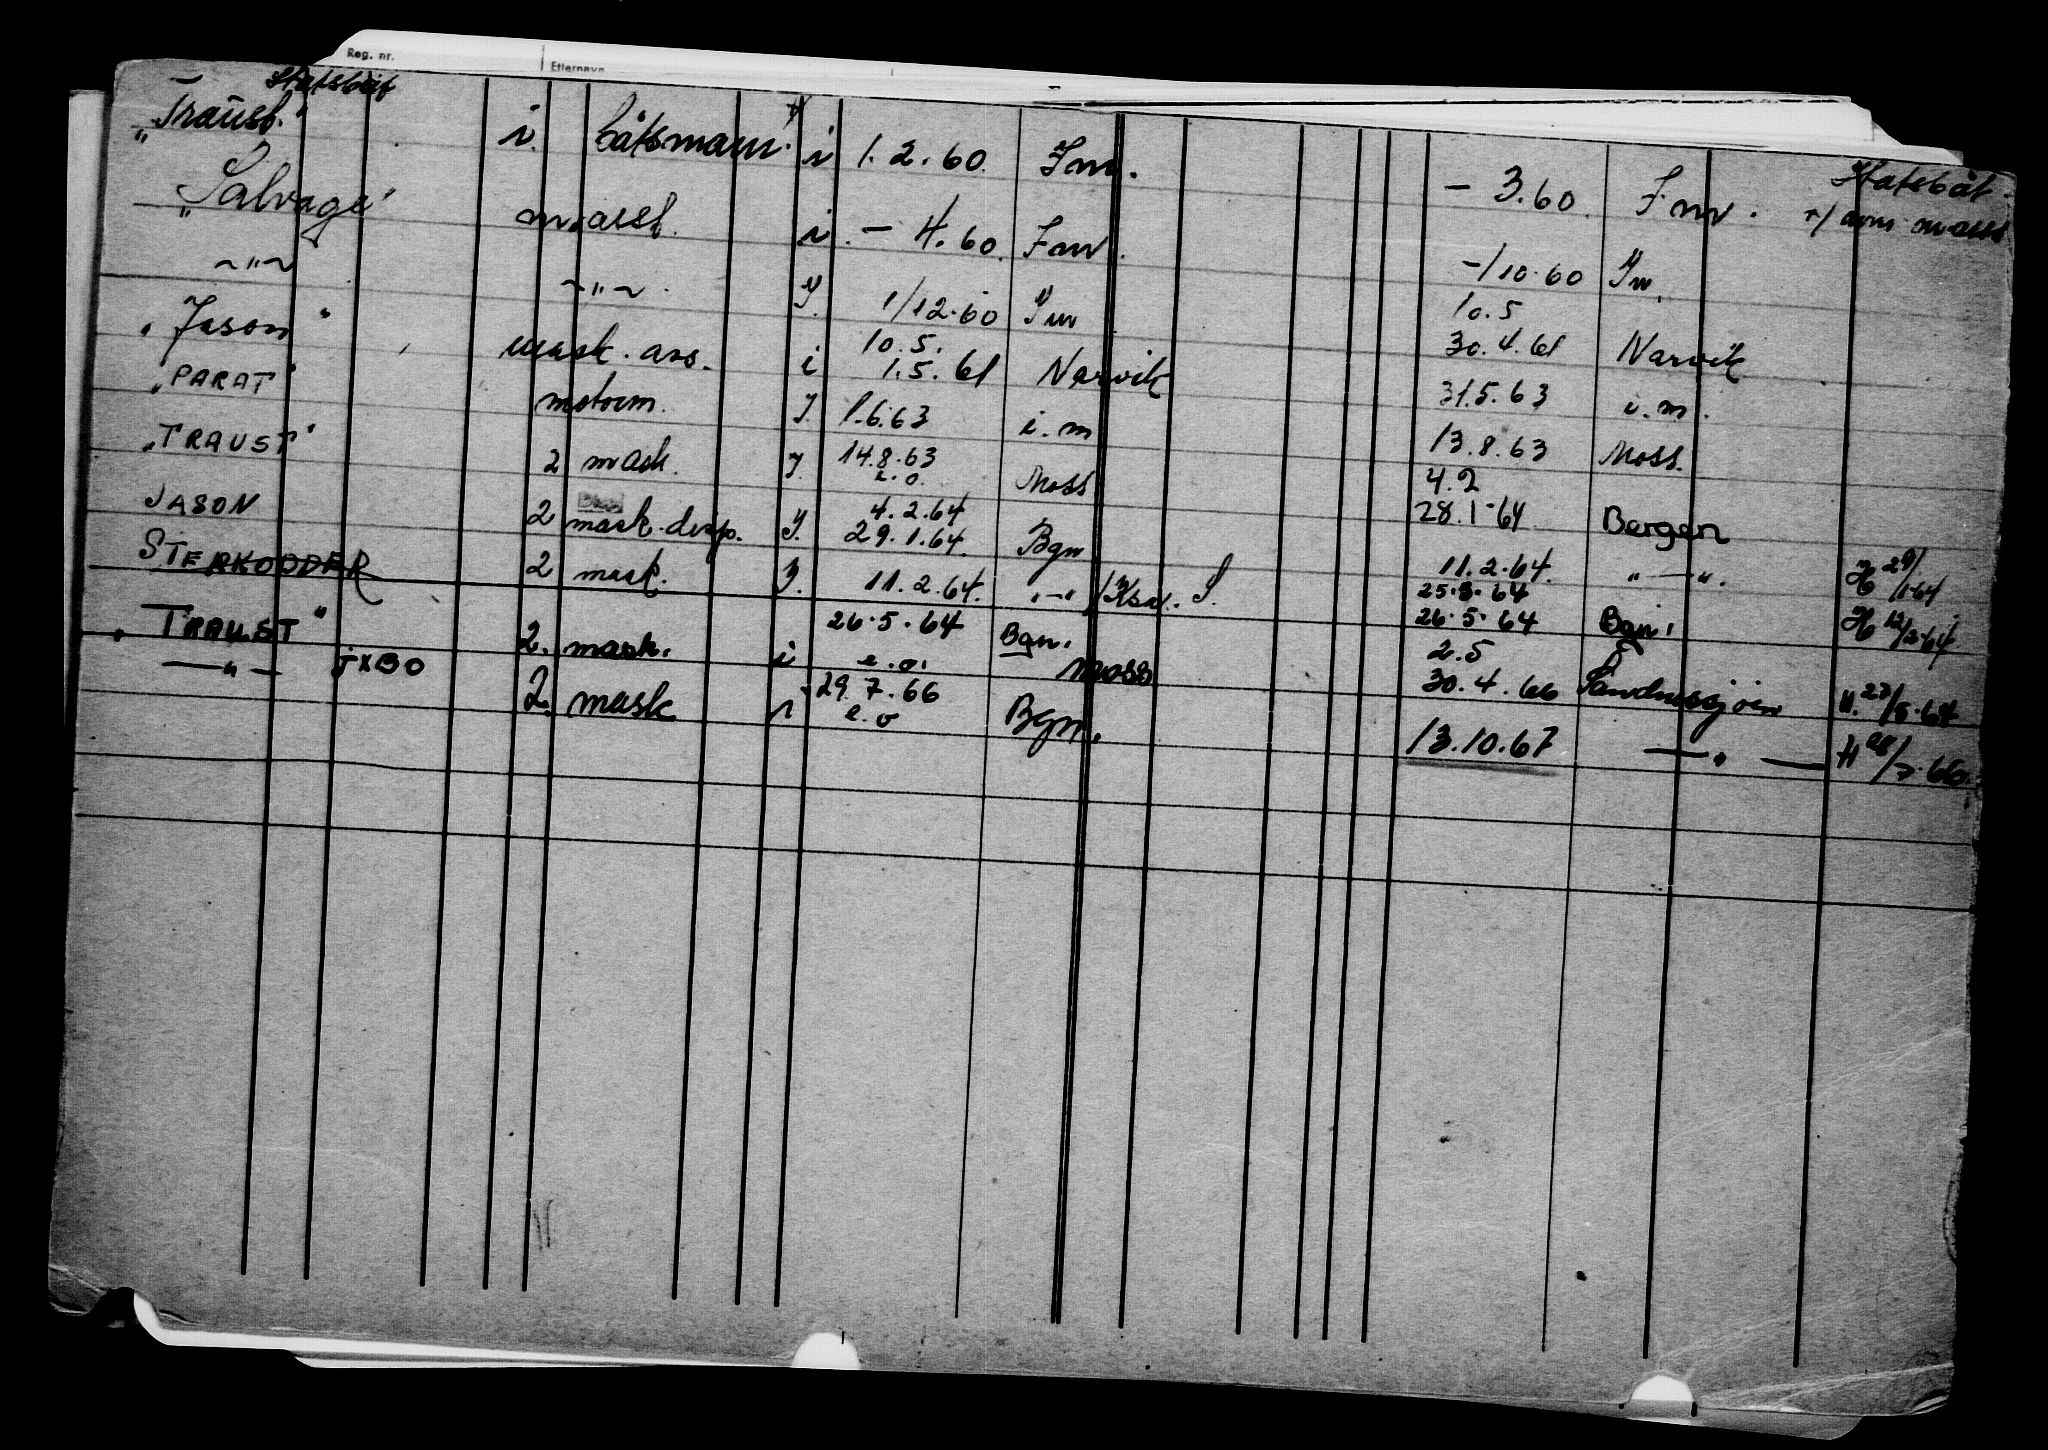 Reg. nr. Etternavn
Statsbåt
"Traust" i. båtsmann i 1.2.60. Inn. - 3.60. Inn. Statsbåt
"Salvage" m.asst. i - 4.60. Inn. som m.asst
-"- -"- y. 1/12.60 -/10.60
"Jason" mask. ass. i 10.5. 1.5.61 Narvik 10.5 30.4.61 Narvik
"PARAT" motorm. y. 1.6.63 i.m 31.5.63 i.m.
"TRAUST" 2 mask. y. 14.8.63 e.o. Moss 13.8.63 Moss.
JASON 2 mask. disp. y. 4.2.64 29.1.64. Bgn 4.2 28.1.64 Bergen
STERKODDER 2 mask. y. 11.2.64. "-" /Ksu. S. 11.2.64. "-". H 29/1-64
25.8.64
"TRAUST" 2. mask. i 26.5.64 e.o. Bgn. Moss 26.5.64 Bgn. H 12/2-64
-"- JXBO 2. mask i 29.7.66 e.o Bgn. 2.5 30.4.66 Sandnessjøen H. 27/5.64
13.10.67 -"- H 28/7.66